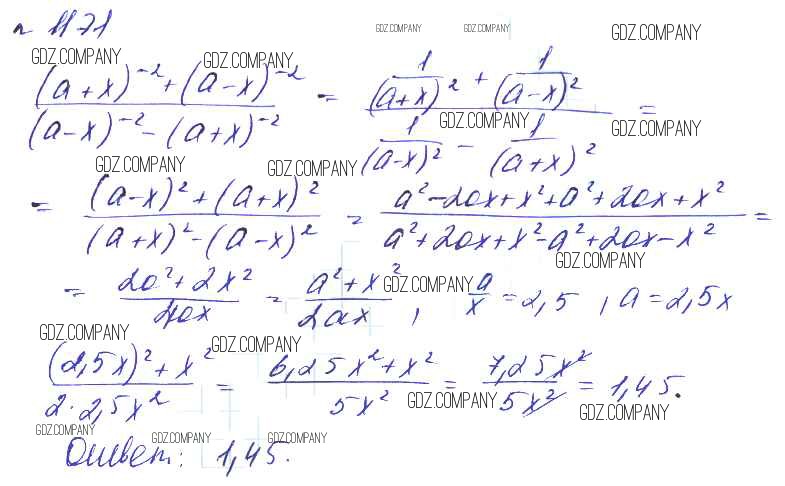 n 1171
GDZ.COMPANY GDZ.COMPANY GDZ.COMPANY
GDZ.COMPANY GDZ.COMPANY
((a+x)⁻² + (a-x)⁻²) / ((a-x)⁻² - (a+x)⁻²) = (1/(a+x)² + 1/(a-x)²) / (1/(a-x)² - 1/(a+x)²) =
GDZ.COMPANY GDZ.COMPANY
GDZ.COMPANY GDZ.COMPANY
= ((a-x)² + (a+x)²) / ((a+x)² - (a-x)²) = (a² - 2ax + x² + a² + 2ax + x²) / (a² + 2ax + x² - a² + 2ax - x²) =
GDZ.COMPANY
= (2a² + 2x²) / 4ax = (a² + x²) / 2ax , a/x = 2,5 , a = 2,5x
GDZ.COMPANY
GDZ.COMPANY GDZ.COMPANY
((2,5x)² + x²) / (2·2,5x²) = (6,25x² + x²) / 5x² = 7,25x² / 5x² = 1,45.
GDZ.COMPANY GDZ.COMPANY
GDZ.COMPANY GDZ.COMPANY GDZ.COMPANY
Ответ: 1,45.